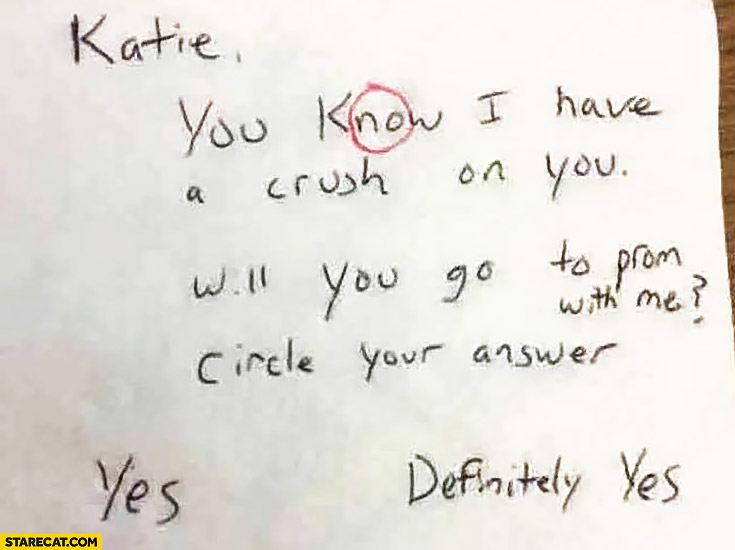 Katie,
You Know I have
a crush on you.
Will you go to prom
with me?
Circle your answer
Yes Definitely Yes
STARECAT.COM